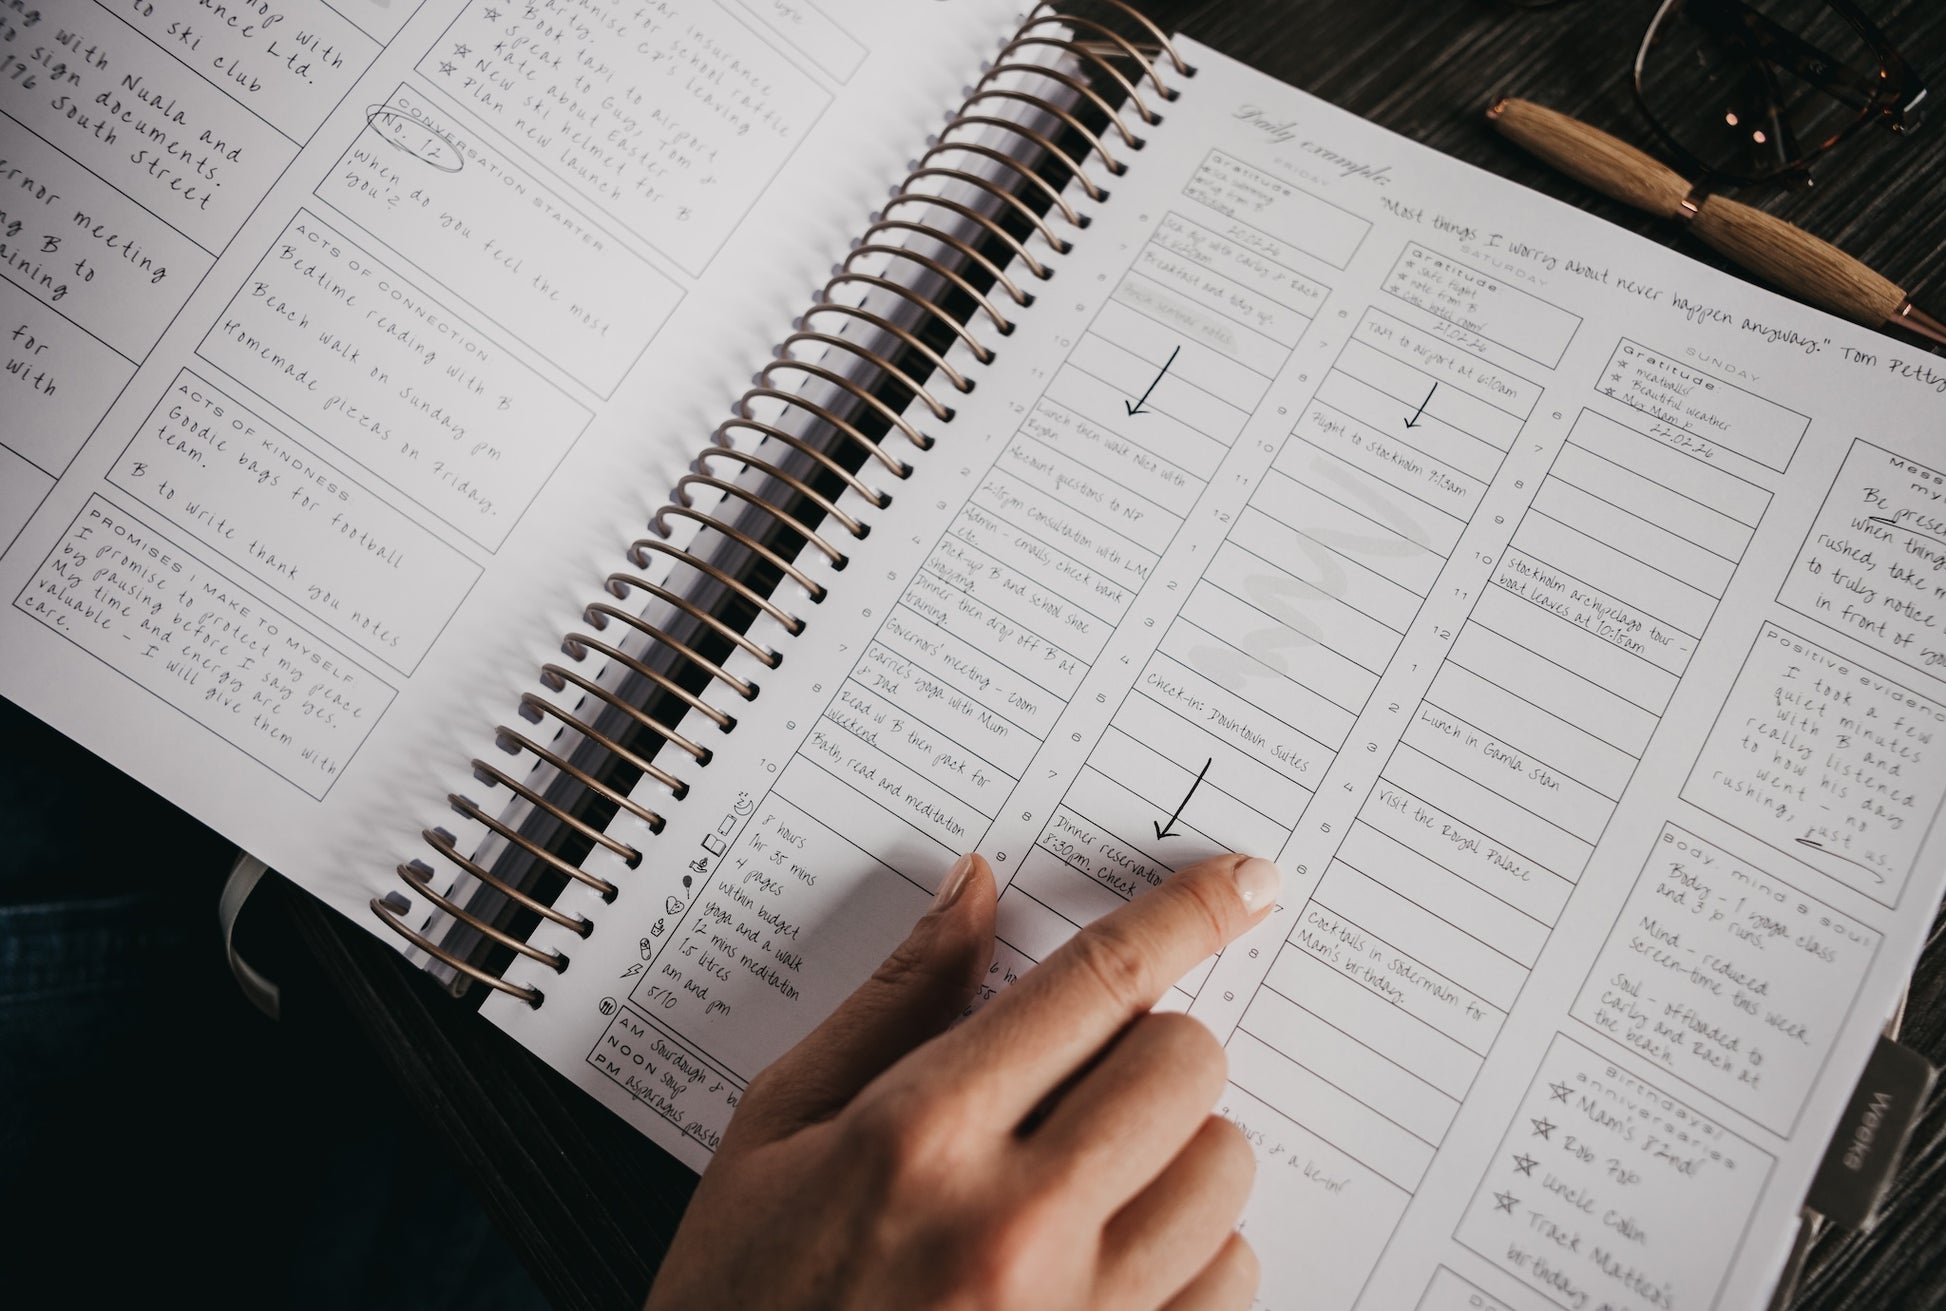 hop with
ance Ltd.
to ski club
ng with Nuala and
to sign documents.
196 South Street
ernor meeting
ng B to
aining
for
with
car insurance
organise CP's leaving
party.
Book taxi to airport
Speak to Guy, Tom &
Kate about Easter
New ski helmet for B
Plan new launch
CONVERSATION STARTER:
No. 12
'When do you feel the most
you'?
ACTS OF CONNECTION:
Bedtime reading with B
Beach walk on Sunday pm
Homemade pizzas on Friday.
ACTS OF KINDNESS:
Goodie bags for football
team.
B to write thank you notes
PROMISES I MAKE TO MYSELF:
I promise to protect my peace
by pausing before I say yes.
My time and energy are
valuable – I will give them with
care.
Daily example:
"Most things I worry about never happen anyway." Tom Petty
FRIDAY
Gratitude
20.02.26
6
Sea dip with Carly & Zach
at 6:25am
7
Breakfast and tidy up.
8
seminar notes
9
10
11
12
Lunch then walk Nico with
Ryan
1
Account questions to NP
2
2:15pm Consultation with LM
3
Admin - emails, check bank
etc.
4
Pick-up B and school shoe
shopping.
5
Dinner then drop off B at
training.
6
Governors' meeting - zoom
7
Carrie's yoga with Mum
& Dad
8
Read w B then pack for
weekend.
9
Bath, read and meditation
10
8 hours
1hr 35 mins
4 pages
within budget
yoga and a walk
12 mins meditation
1.5 litres
am and pm
5/10
AM Sourdough & bu
NOON soup
PM asparagus pasta
SATURDAY
Gratitude:
safe flight
note from B
hotel room!
21.02.26
6
Taxi to airport at 6:10am
7
8
9
Flight to Stockholm 9:13am
10
11
12
1
2
3
4
5
Check-in: Downtown Suites
6
7
8
Dinner reservation
8:30pm. Check
9
SUNDAY
Gratitude:
meatballs!
Beautiful weather
Mam
22.02.26
6
7
8
9
10
Stockholm archipelago tour -
boat leaves at 10:15am
11
12
1
2
Lunch in Gamla Stan
3
4
Visit the Royal Palace
5
6
7
Cocktails in Södermalm for
Mam's birthday.
8
9
9 hours & a lie-in!
Mess
my
Be prese
when things
rushed, take m
to truly notice
in front of you
Positive evidenc
I took a few
quiet minutes
with B and
really listened
to how his day
went – no
rushing, just us.
Body, mind & soul:
Body - 1 yoga class
and 3 p runs.
Mind - reduced
screen-time this week.
Soul - offloaded to
Carly and Zach at
the beach.
Birthdays/
anniversaries
Mam's 82nd!
Rob
Uncle Colin
Track Matter's
birthday
Weeks